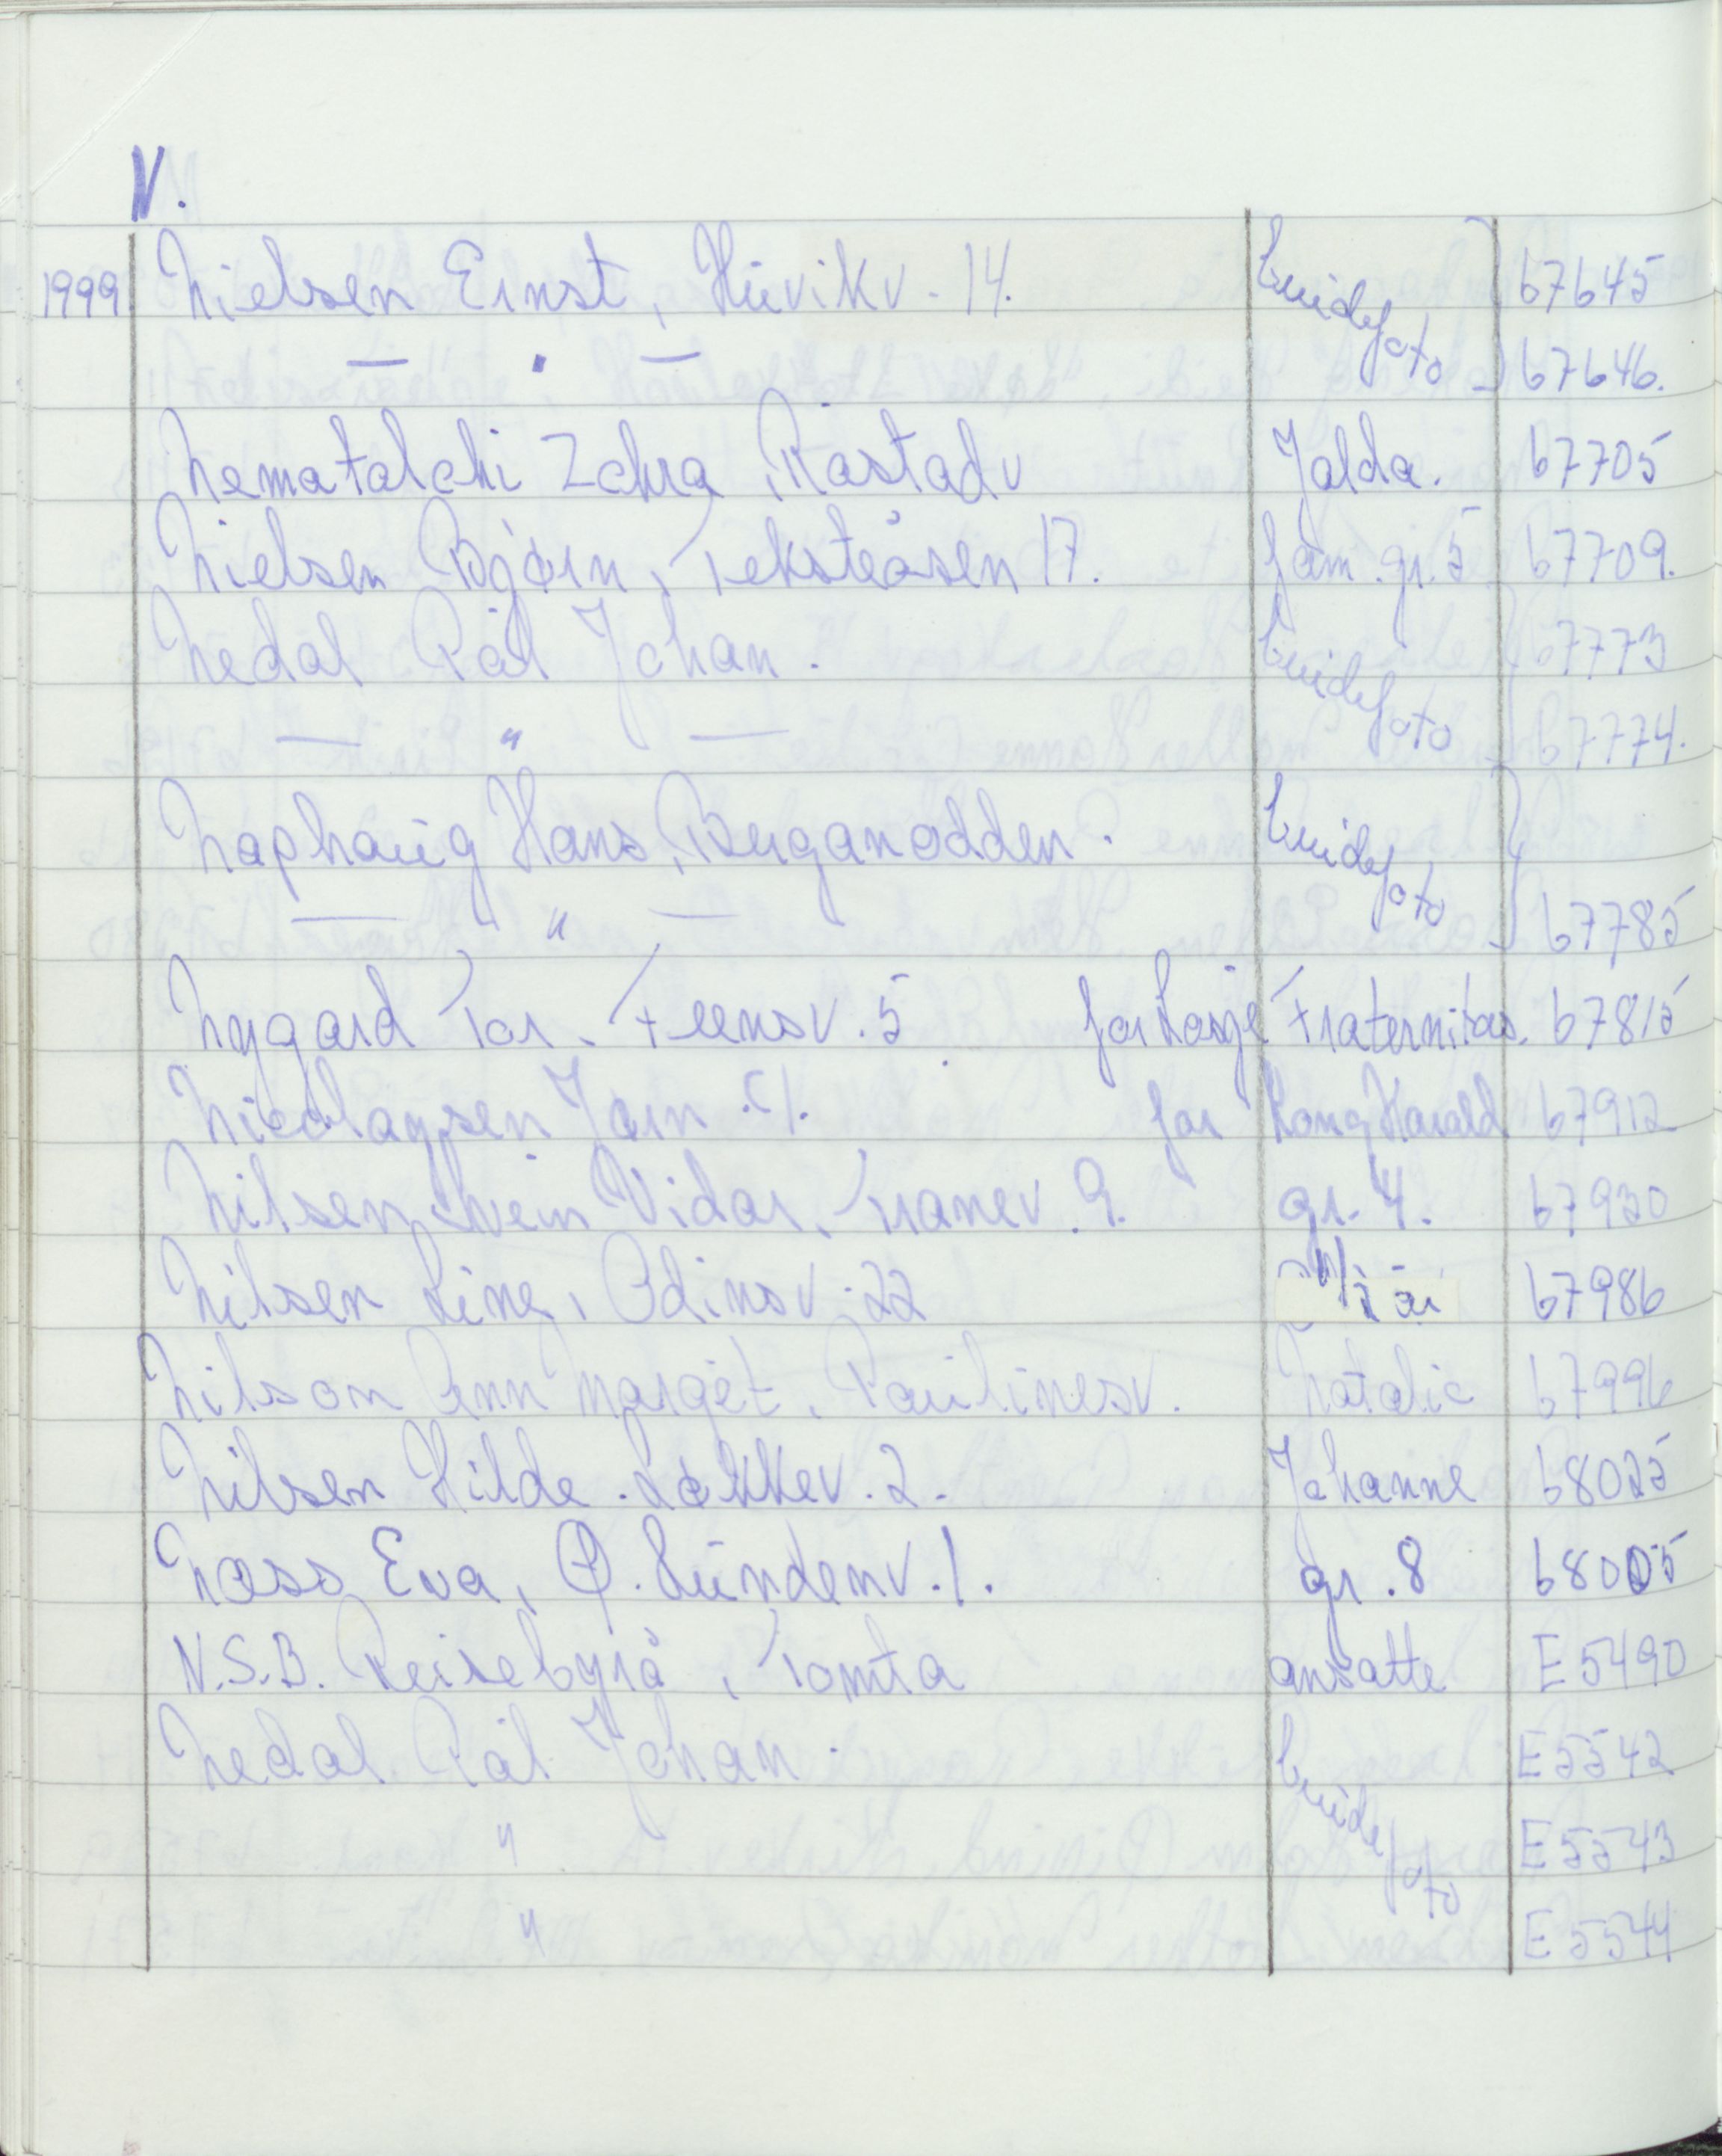 N.
1999 Nielsen Ernst, Huvikv. 14. brudefoto 67645
— " — 67646.
Nematalchi Zohra, Råstadv Jalda. 67705
Nielsen Bjørn, Teksteåsen 17. fam. gr. 5 67709.
Nedal Pål Johan. brudefoto 67773
— " — 67774.
Naphaug Hans, Buganodden. brudefoto
— " — 67785
Nygard Tor. Feensv. 5 for Losje Fraternitas. 67815
Nicolaysen Jørn for Kong Harald 67912
Nilsen Svein Vidar, Tranev. 9. gr. 4. 67930
Nilsen Line, Odinsv. 22 67986
Nilson Ann Marget, Paulinesv. Natalie 67996
Nilsen Hilde. Løkkev. 2. Johanne 68025
Næss Eva, Ø. Lundenv. 1. gr. 8 68005
N.S.B. Reisebyrå, Tomta ansatte E 5490
Nedal Pål Johan. brudefoto E 5542
" E 5543
" E 5544